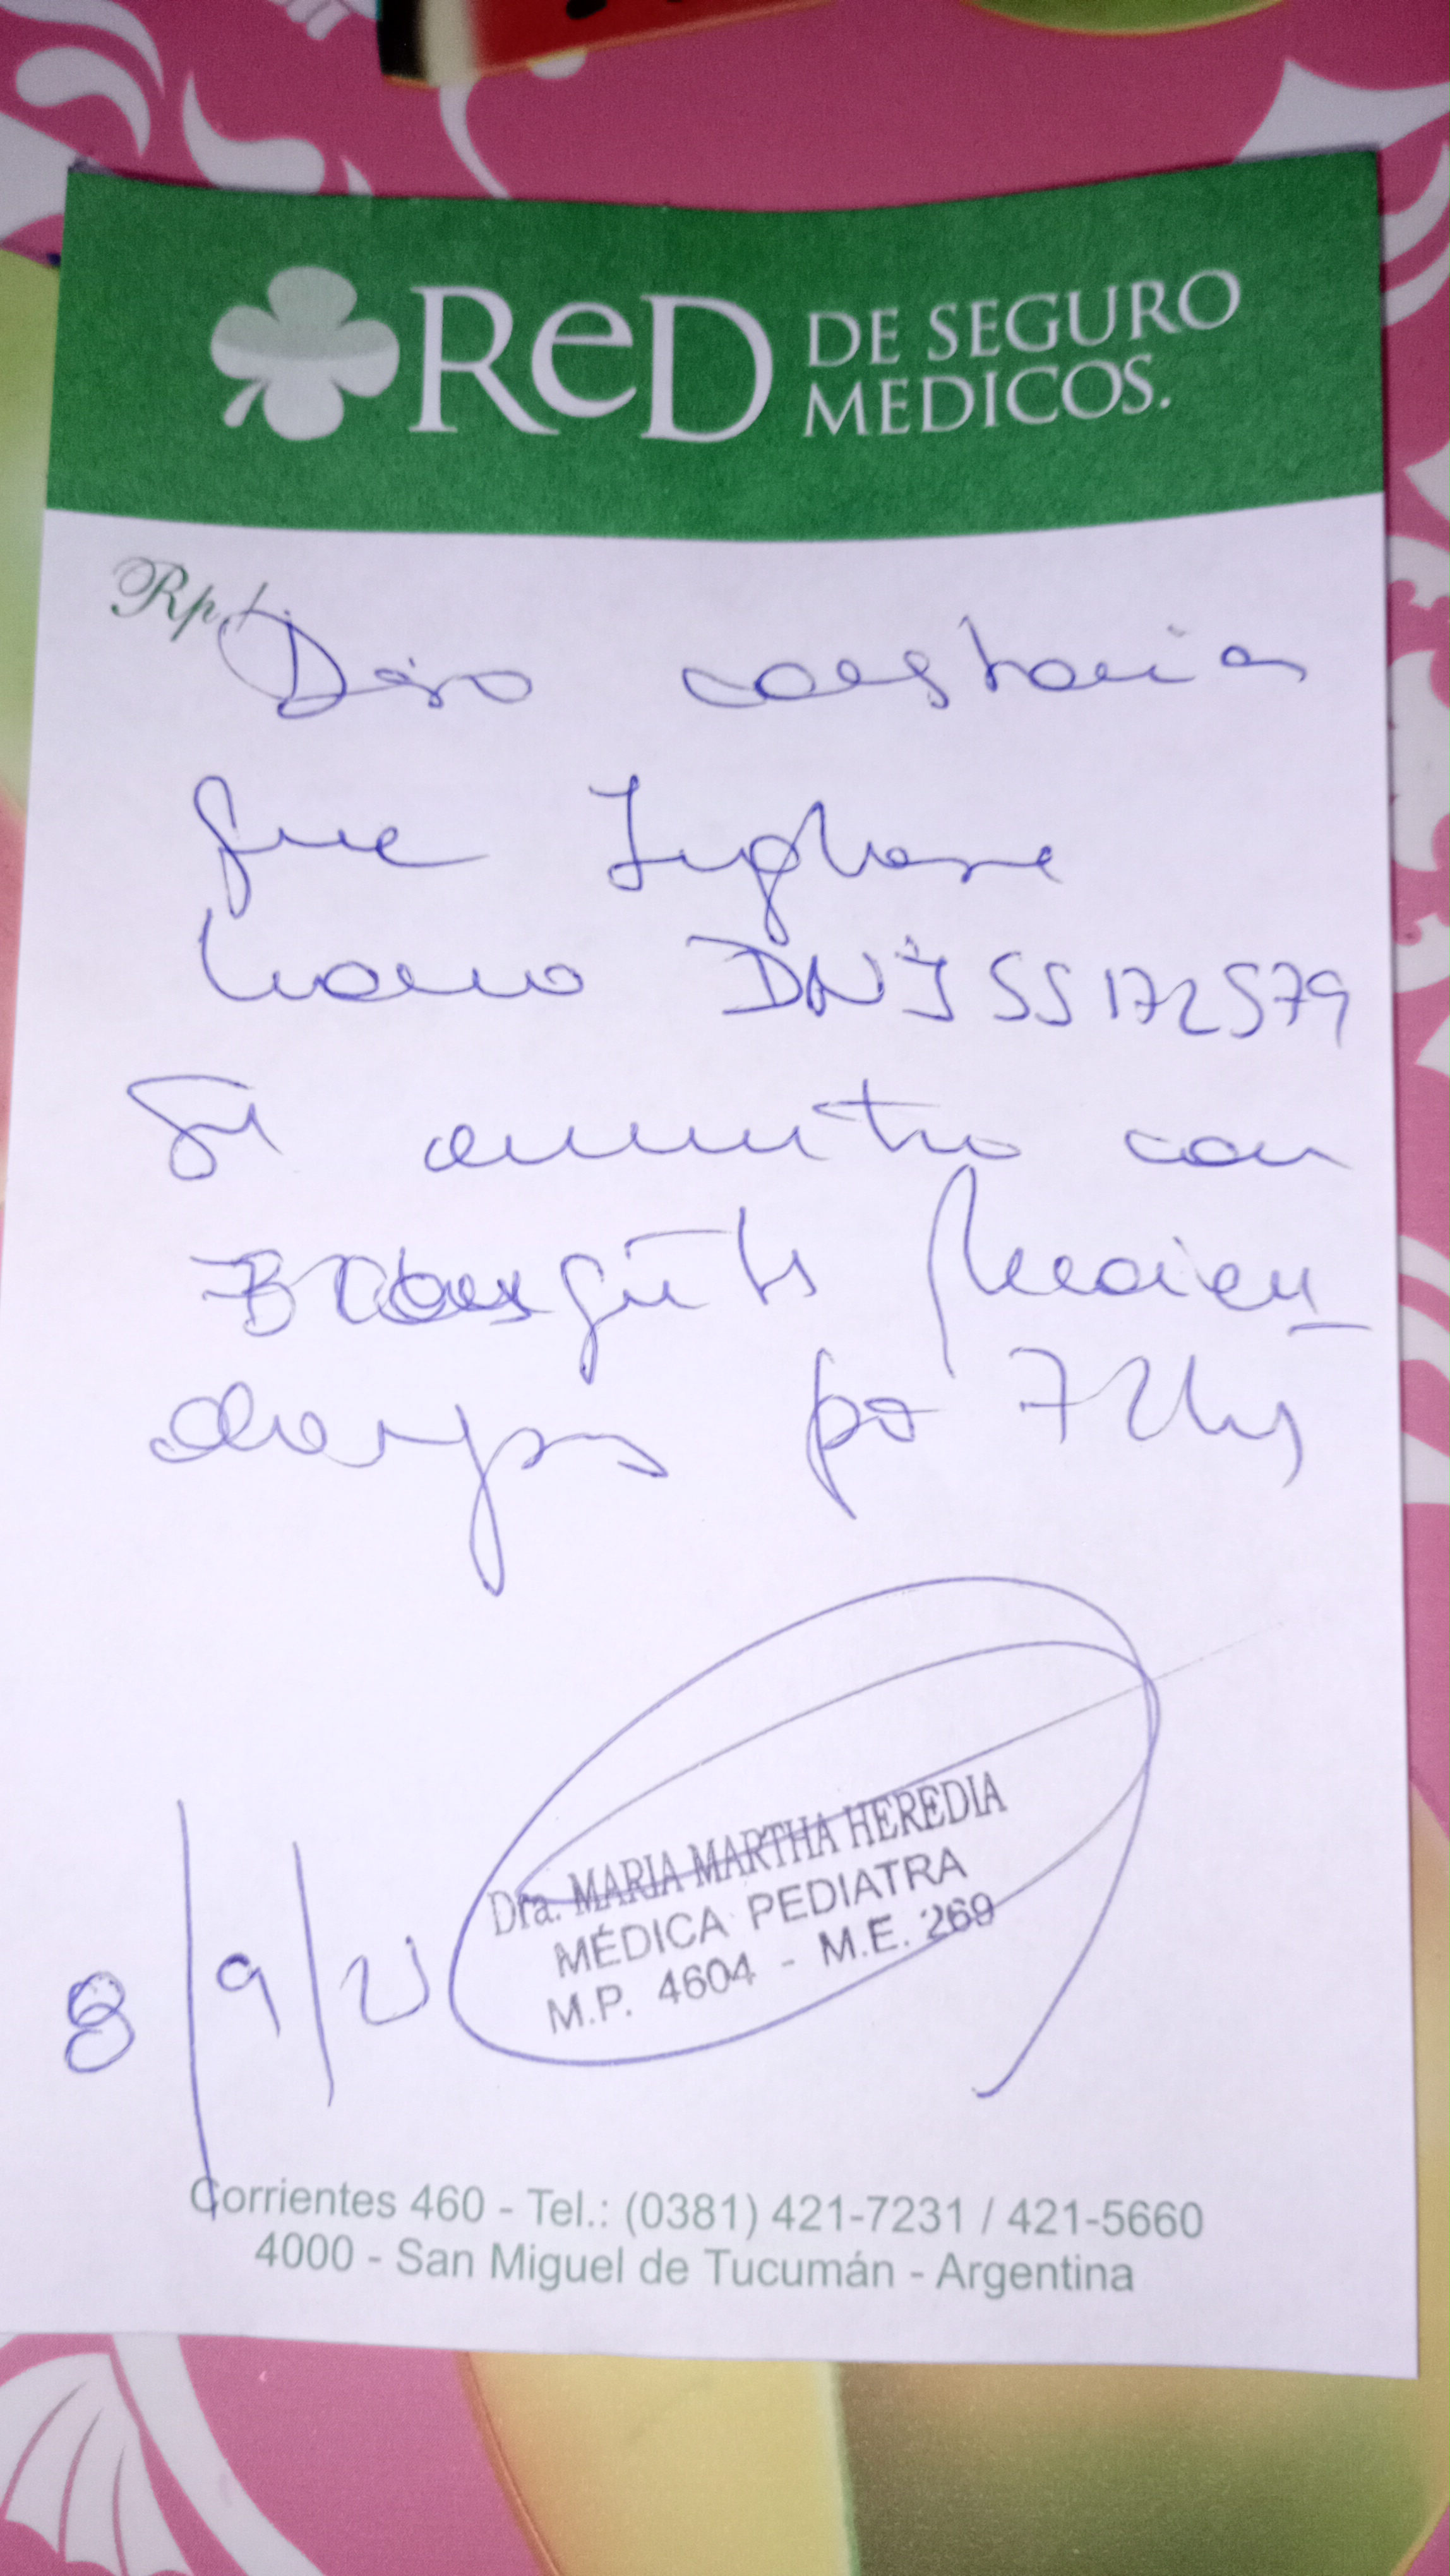 ReD DE SEGURO
MEDICOS.
Rp/
Dejo constancia
que Inglese
DNI 55172579
Se encuentra con
Bronquitis
por 72hs
Dra. MARIA MARTHA HEREDIA
MÉDICA PEDIATRA
M.P. 4604 - M.E. 269
8/9/21
Corrientes 460 - Tel.: (0381) 421-7231 / 421-5660
4000 - San Miguel de Tucumán - Argentina